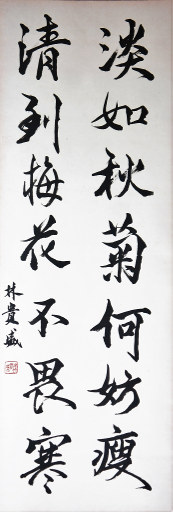 淡如秋菊何妨瘦
清到梅花不畏寒
林貴盛